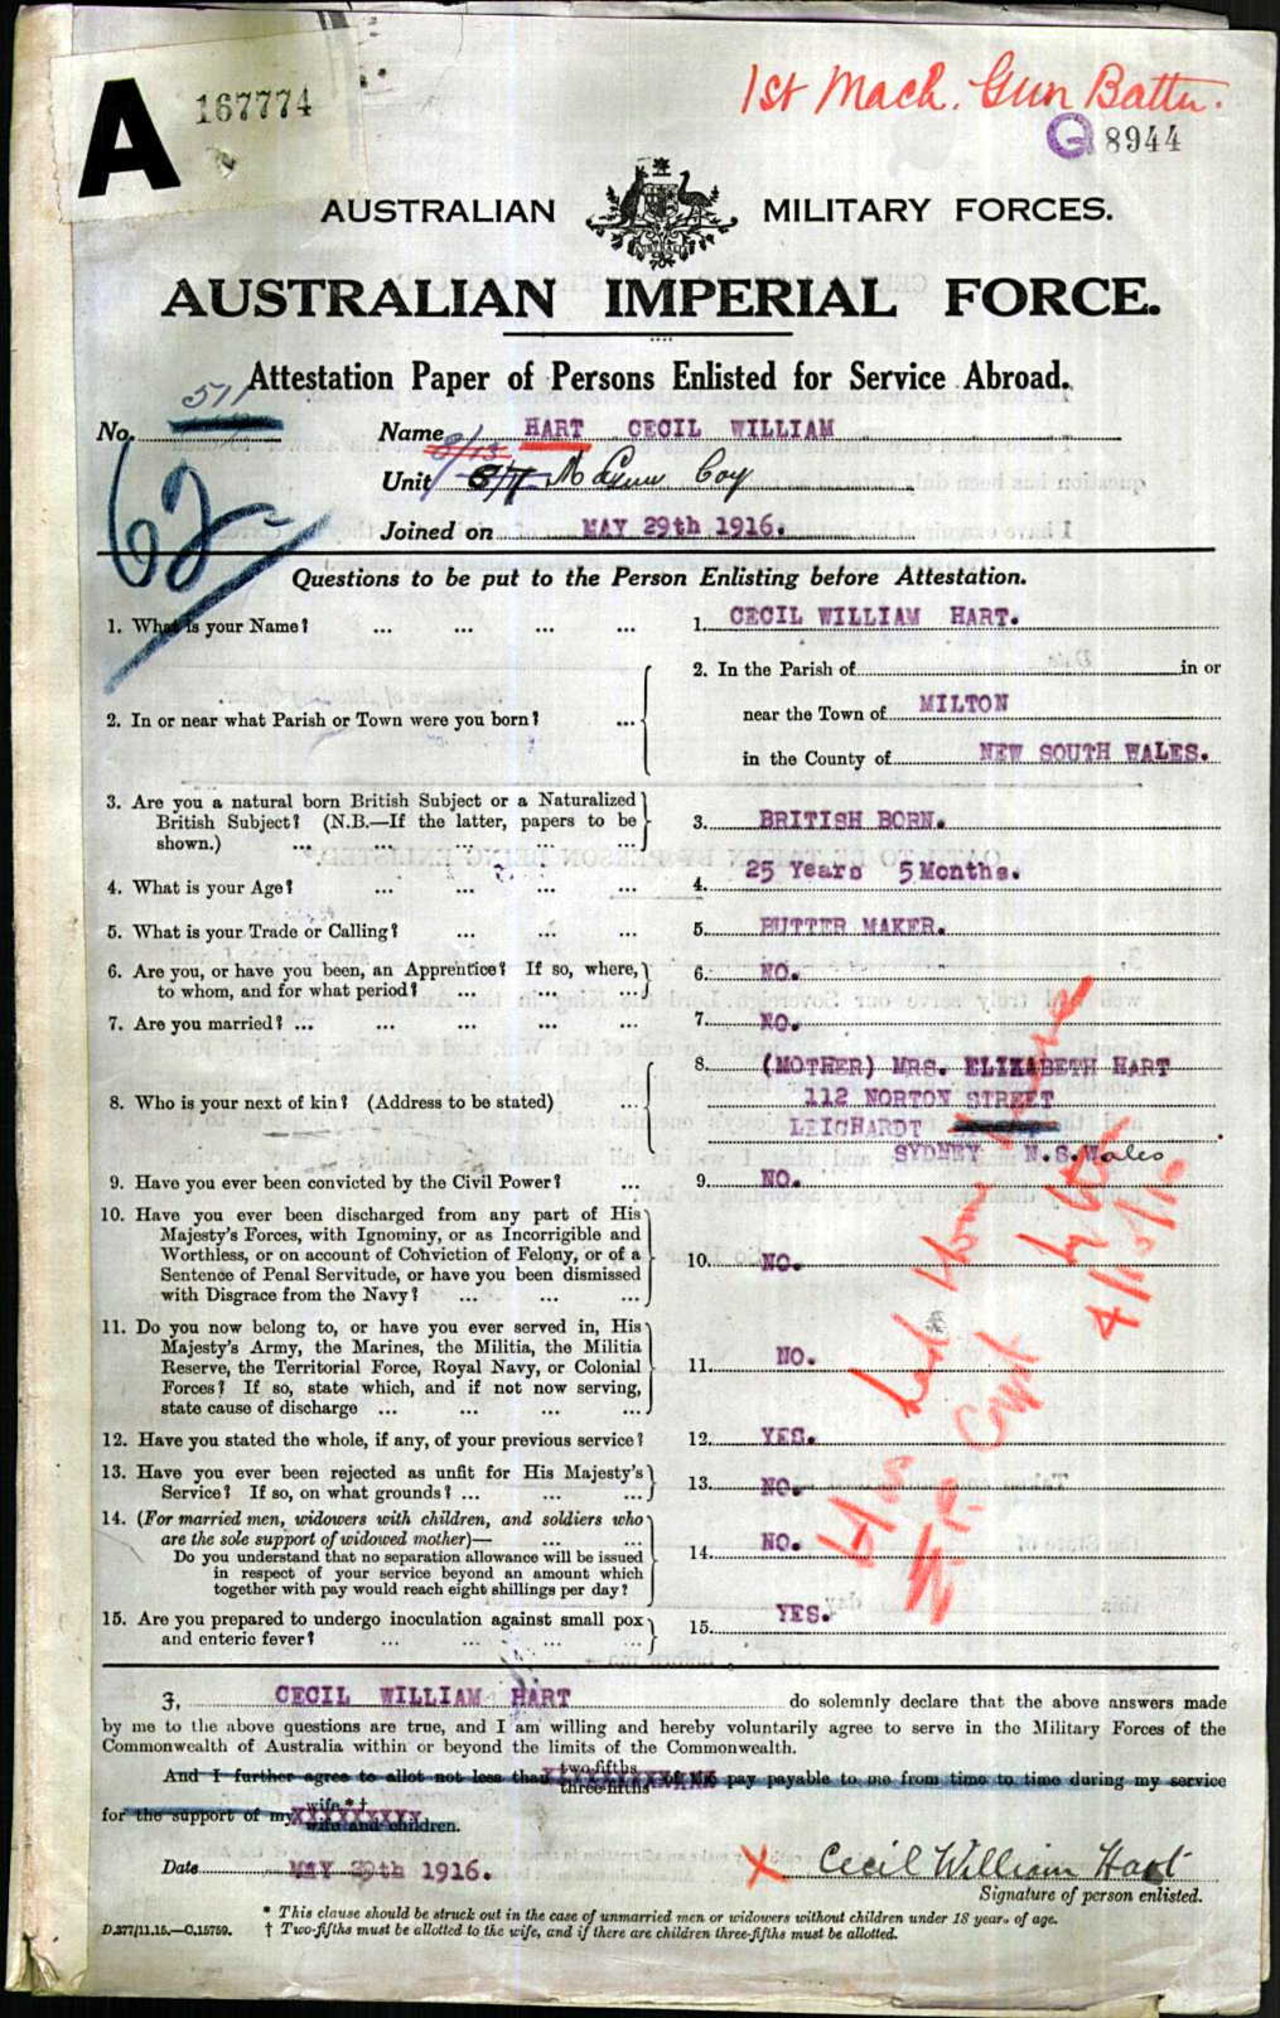 A 167774
1st Mach. Gun Battn.
Q 8944
AUSTRALIAN MILITARY FORCES.
AUSTRALIAN IMPERIAL FORCE.
Attestation Paper of Persons Enlisted for Service Abroad.
511
No. Name HART CECIL WILLIAM
62
Unit M Gun Coy
Joined on MAY 29th 1916.
Questions to be put to the Person Enlisting before Attestation.
1. What is your Name? ... ... ... ... 1. CECIL WILLIAM HART.
2. In the Parish of in or
2. In or near what Parish or Town were you born? ... near the Town of MILTON
in the County of NEW SOUTH WALES.
3. Are you a natural born British Subject or a Naturalized
British Subject? (N.B.—If the latter, papers to be 3. BRITISH BORN.
shown.) ... ... ... ... ...
4. What is your Age? ... ... ... ... 4. 25 Years 5 Months.
5. What is your Trade or Calling? ... ... ... 5. BUTTER MAKER.
6. Are you, or have you been, an Apprentice? If so, where, 6. NO.
to whom, and for what period? ... ... ...
7. Are you married? ... ... ... ... ... 7. NO.
8. (MOTHER) MRS. ELIZABETH HART
8. Who is your next of kin? (Address to be stated) ... 112 NORTON STREET
LEICHARDT
SYDNEY N.S.Wales
9. Have you ever been convicted by the Civil Power? ... 9. NO.
10. Have you ever been discharged from any part of His
Majesty's Forces, with Ignominy, or as Incorrigible and
Worthless, or on account of Conviction of Felony, or of a 10. NO.
Sentence of Penal Servitude, or have you been dismissed
with Disgrace from the Navy? ... ... ...
11. Do you now belong to, or have you ever served in, His
Majesty's Army, the Marines, the Militia, the Militia
Reserve, the Territorial Force, Royal Navy, or Colonial 11. NO.
Forces? If so, state which, and if not now serving,
state cause of discharge ... ... ... ...
12. Have you stated the whole, if any, of your previous service? 12. YES.
13. Have you ever been rejected as unfit for His Majesty's 13. NO.
Service? If so, on what grounds? ... ... ...
14. (For married men, widowers with children, and soldiers who
are the sole support of widowed mother)— ... ...
Do you understand that no separation allowance will be issued 14. NO.
in respect of your service beyond an amount which
together with pay would reach eight shillings per day?
15. Are you prepared to undergo inoculation against small pox 15. YES.
and enteric fever? ... ... ... ...
I, CECIL WILLIAM HART do solemnly declare that the above answers made
by me to the above questions are true, and I am willing and hereby voluntarily agree to serve in the Military Forces of the
Commonwealth of Australia within or beyond the limits of the Commonwealth.
And I further agree to allot not less than two-fifths three-fifths of the pay payable to me from time to time during my service
for the support of my wife * † wife and children.
Date MAY 29th 1916. X Cecil William Hart
Signature of person enlisted.
* This clause should be struck out in the case of unmarried men or widowers without children under 18 years of age.
D.377/11.15.—C.15759. † Two-fifths must be allotted to the wife, and if there are children three-fifths must be allotted.